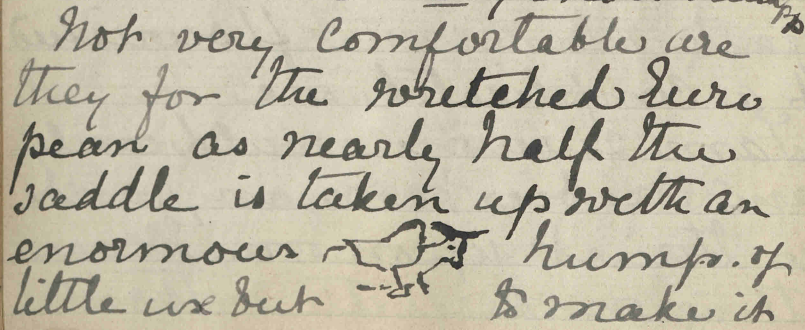 Not very comfortable are
they for the wretched Euro
pean as nearly half the
saddle is taken up with an
enormous hump. of
little use but to make it